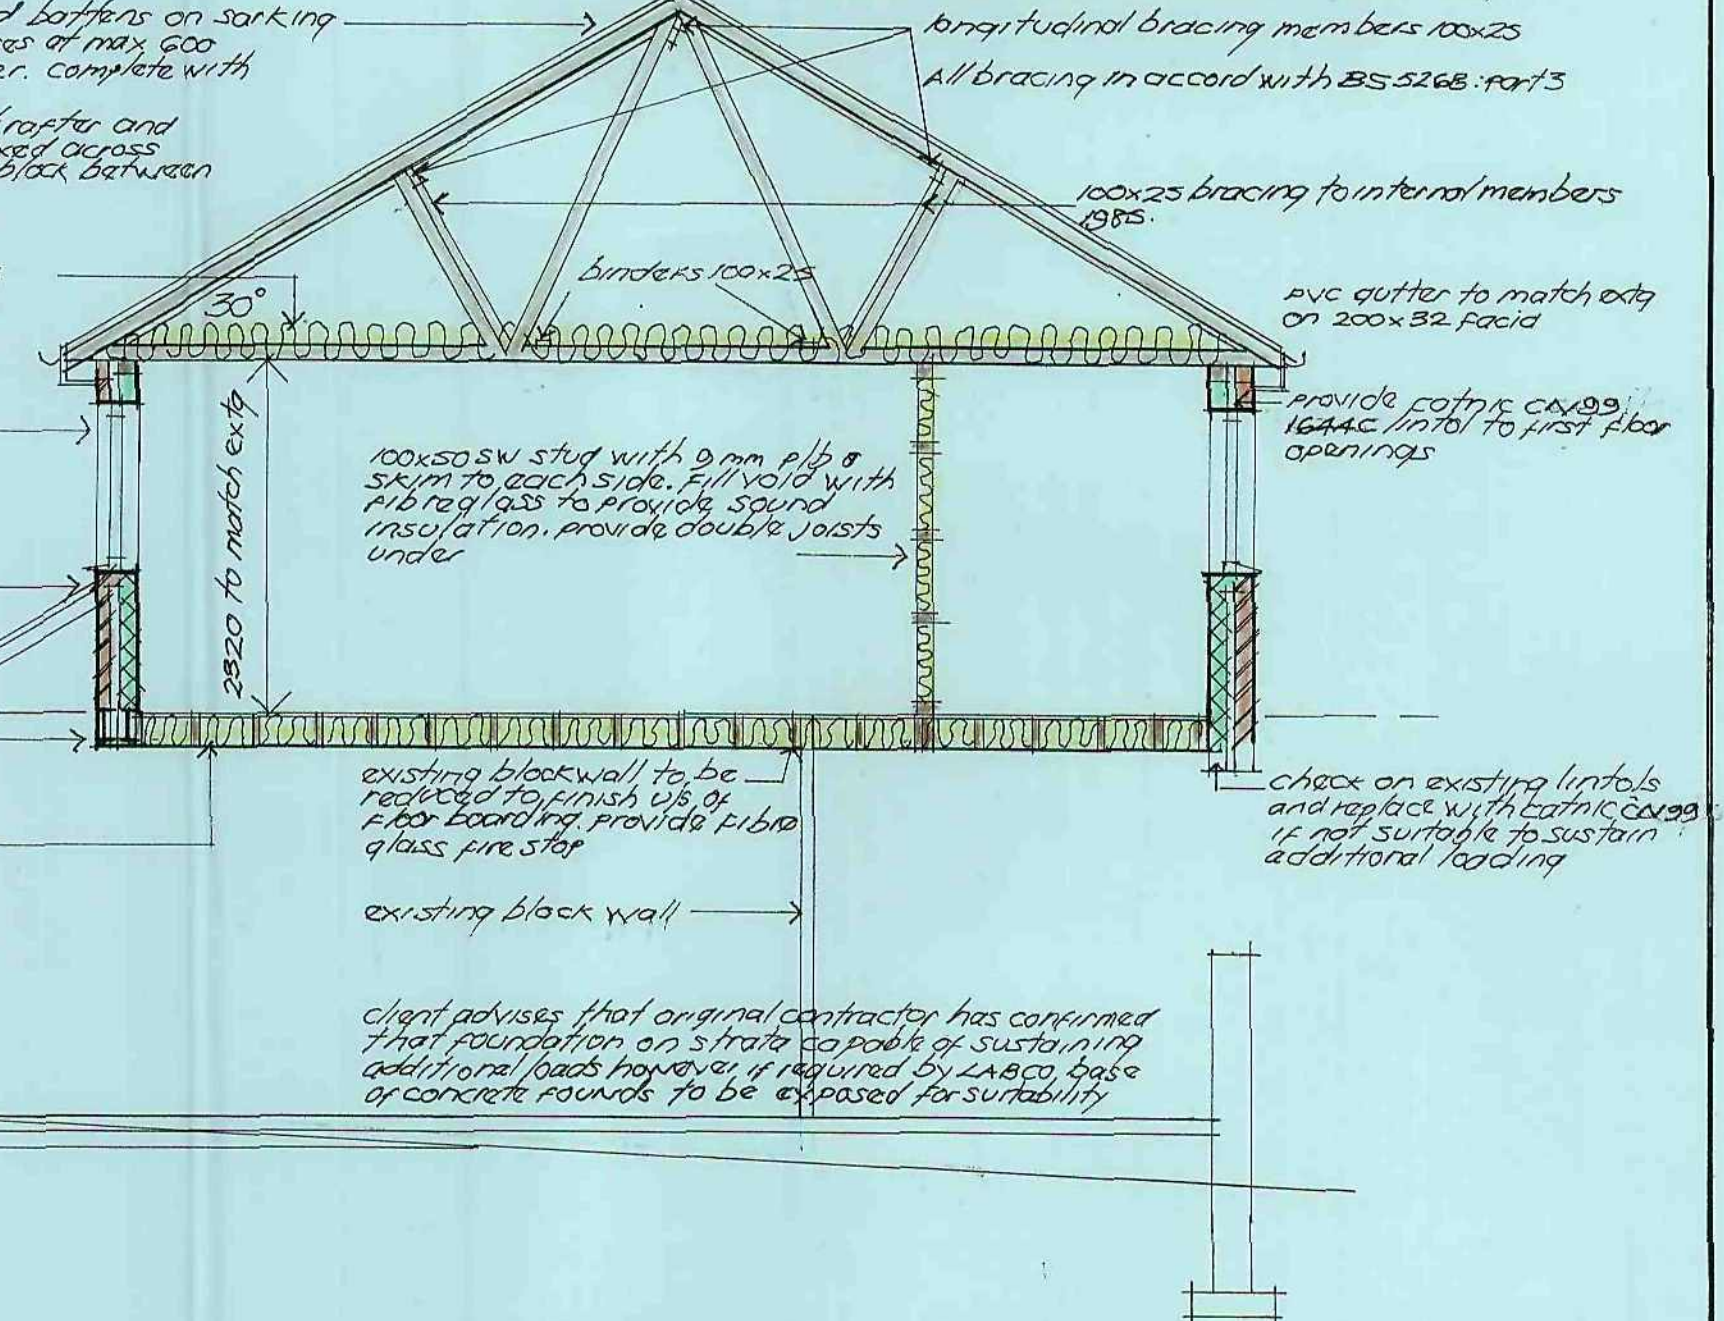 battens on sarking
at max 600
complete with
rafter and
across
block between
longitudinal bracing members 100x25
All bracing in accord with BS 5268: part 3
100x25 bracing to internal members
1985.
30°
binders 100x25
pvc gutter to match extg
on 200x32 facid
provide catnic CN99
1644C lintol to first floor
openings
2320 to match extg
100x50 SW stud with 9mm plb &
skim to each side. Fill void with
fibreglass to provide sound
insulation. provide double joists
under
existing block wall to be
reduced to finish u/s of
floor boarding. provide fibre
glass fire stop
check on existing lintols
and replace with catnic CN99
if not suitable to sustain
additional loading
existing block wall
client advises that original contractor has confirmed
that foundation on strata capable of sustaining
additional loads however, if required by LABCO, base
of concrete founds to be exposed for suitability